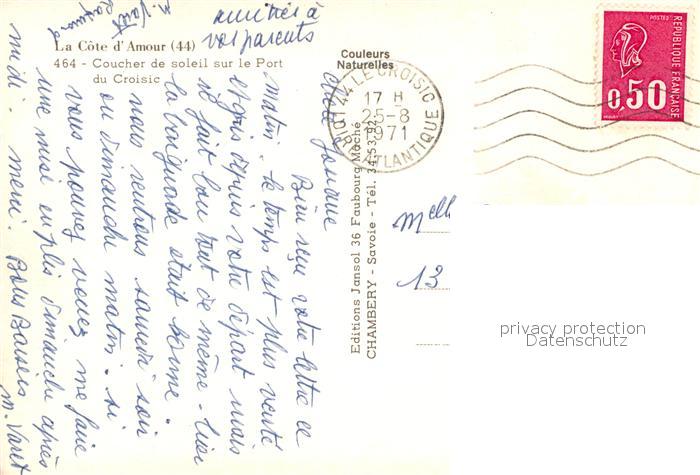 La Côte d'Amour (44)
464 - Coucher de soleil sur le Port
du Croisic
Couleurs
Naturelles
44 LE CROISIC
17 H
25-8
1971
LOIRE ATLANTIQUE
POSTES
REPUBLIQUE FRANÇAISE
0,50
Editions Jansol 36 Faubourg Maché
CHAMBERY - Savoie - Tél. 34.53.92
Bien reçu votre lettre ce
matin. le temps est plus venté
et gris depuis votre départ mais
il fait bon tout de même. hier
la était bonne.
nous rentrons samedi soir
ou dimanche matin. si
vous pouvez venez me faire
une mise en plis dimanche après
midi. merci. Bons Baisers
M. Varet
amitiés à
vos parents
Melle
13
privacy protection
Datenschutz